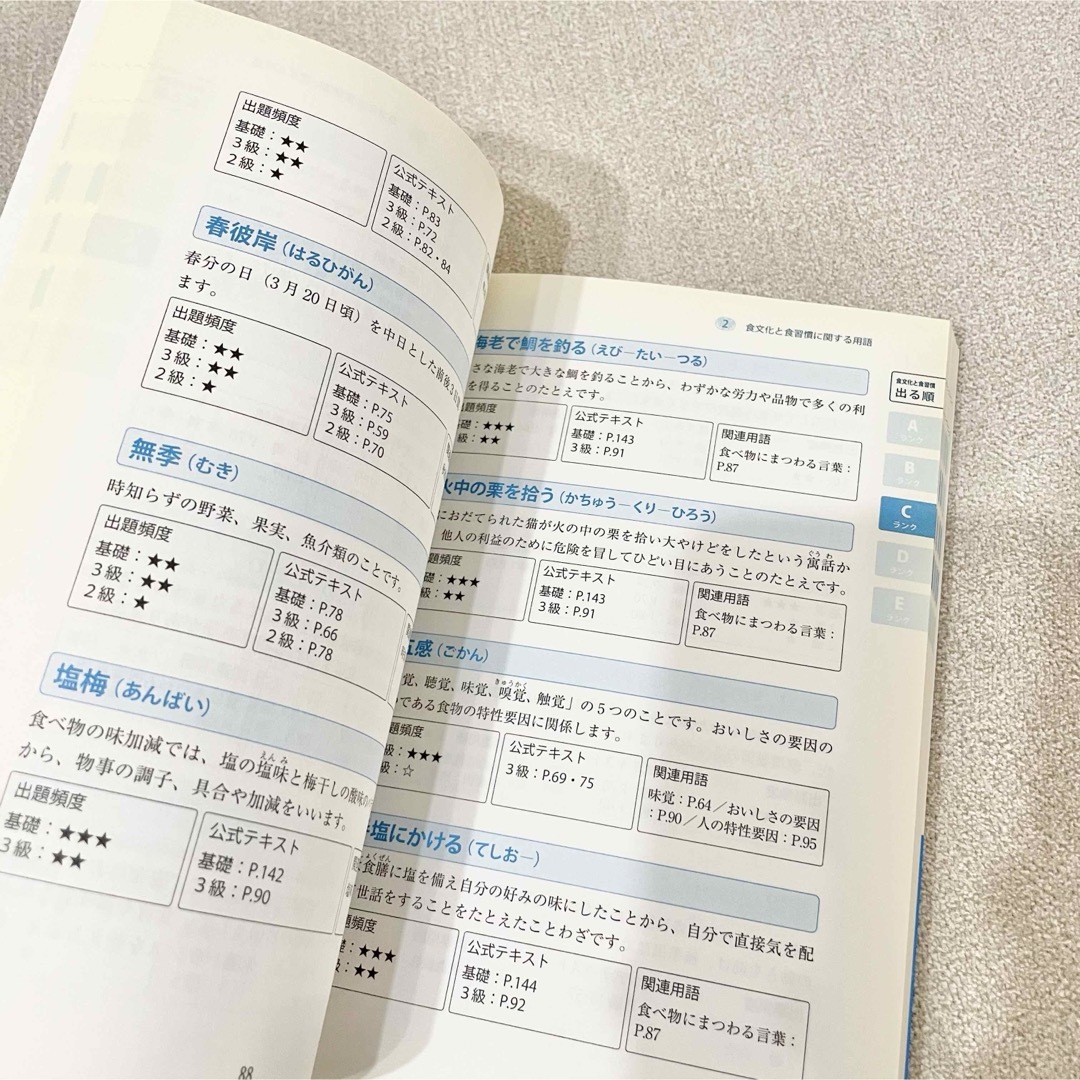 出題頻度
基礎：★★
3級：★★
2級：★
公式テキスト
基礎：P.83
3級：P.72
2級：P.82・84
春彼岸（はるひがん）
春分の日（3月20日頃）を中日とした前後3日
ます。
出題頻度
基礎：★★
3級：★★
2級：★
公式テキスト
基礎：P.75
3級：P.59
2級：P.70
無季（むき）
時知らずの野菜、果実、魚介類のことです。
出題頻度
基礎：★★
3級：★★
2級：★
公式テキスト
基礎：P.78
3級：P.66
2級：P.78
塩梅（あんばい）
えんみ
食べ物の味加減では、塩の塩味と梅干しの酸味の
から、物事の調子、具合や加減をいいます。
出題頻度
基礎：★★★
3級：★★
公式テキスト
基礎：P.142
3級：P.90
88
2 食文化と食習慣に関する用語
海老で鯛を釣る（えび－たい－つる）
さな海老で大きな鯛を釣ることから、わずかな労力や品物で多くの利
を得ることのたとえです。
出題頻度
：★★★
：★★
公式テキスト
基礎：P.143
3級：P.91
関連用語
食べ物にまつわる言葉：
P.87
火中の栗を拾う（かちゅう－くり－ひろう）
ぐうわ
におだてられた猫が火の中の栗を拾い大やけどをしたという寓話か
他人の利益のために危険を冒してひどい目にあうことのたとえです。
題頻度
：★★★
：★★
公式テキスト
基礎：P.143
3級：P.91
関連用語
食べ物にまつわる言葉：
P.87
五感（ごかん）
きゅうかく
覚、聴覚、味覚、嗅覚、触覚」の5つのことです。おいしさの要因の
である食物の特性要因に関係します。
題頻度
：★★★
級：☆
公式テキスト
3級：P.69・75
関連用語
味覚：P.64／おいしさの要因
：P.90／人の特性要因：P.95
塩にかける（てしお－）
くぜん
食膳に塩を備え自分の好みの味にしたことから、自分で直接気を配
世話をすることをたとえたことわざです。
題頻度
：★★★
：★★
公式テキスト
基礎：P.144
3級：P.92
関連用語
食べ物にまつわる言葉：
P.87
食文化と食習慣
出る順
A
ランク
B
ランク
C
ランク
D
ランク
E
ランク